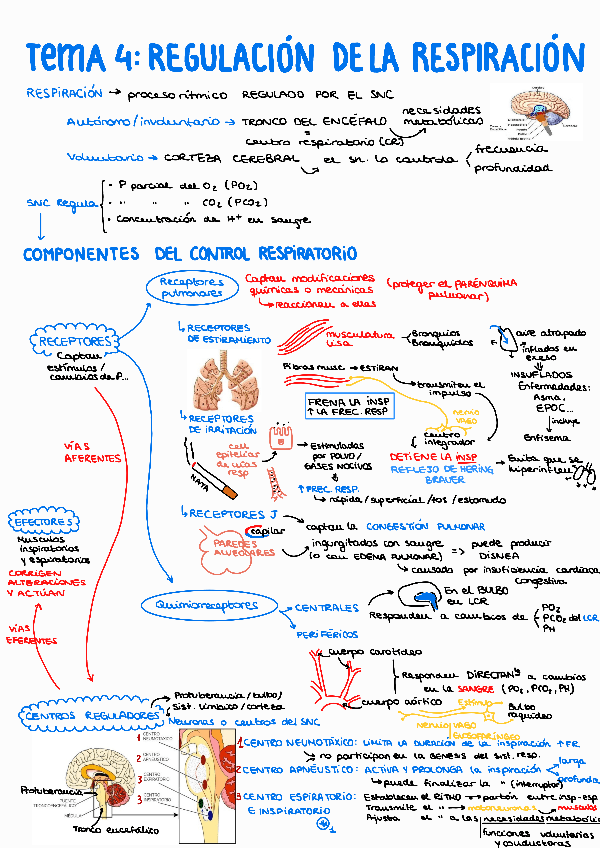 TEMA 4: REGULACIÓN DE LA RESPIRACIÓN
RESPIRACIÓN → proceso rítmico REGULADO POR EL SNC
Autónomo/involuntario → TRONCO DEL ENCÉFALO
necesidades metabólicas
=
Centro respiratorio (CR)
Voluntario → CORTEZA CEREBRAL
el sn. lo controla
frecuencia
profundidad
SNC Regula
· P parcial del O2 (PO2)
· " " " CO2 (PCO2)
· Concentración de H+ en sangre
COMPONENTES DEL CONTROL RESPIRATORIO
Receptores pulmonares
Captan modificaciones químicas o mecánicas
→ reaccionan a ellas
(proteger el PARÉNQUIMA pulmonar)
RECEPTORES
Captan estímulos / cambios de P...
↳ RECEPTORES DE ESTIRAMIENTO
musculatura lisa
Bronquios
Bronquiolos
aire atrapado
inflados en exceso
INSUFLADOS
Enfermedades:
Asma,
EPOC...
incluye
Enfisema
Fibras musc → ESTIRAN
transmiten el impulso
FRENA LA INSP
↑ LA FREC. RESP
nervio VAGO
centro integrador
DETIENE LA INSP
REFLEJO DE HERING BRAVER
→ Evita que se hiperinflen
↳ RECEPTORES DE IRRITACIÓN
cell epitelial de vías resp
NATA
→ Estimuladas por POLVO / GASES NOCIVOS
↑ FREC. RESP.
↳ rápida / superficial / tos / estornudo
VÍAS AFERENTES
↳ RECEPTORES J
capilar
PAREDES ALVEOLARES
captan la CONGESTIÓN PULMONAR
→ ingurgitados con sangre (o con EDEMA PULMONAR) => puede producir DISNEA
↳ causado por insuficiencia cardíaca congestiva
EFECTORES
Musculos inspiratorios y espiratorios
CORRIGEN ALTERACIONES Y ACTÚAN
VÍAS EFERENTES
Quimiorreceptores
CENTRALES
En el BULBO en LCR
Responden a cambios de
PO2
PCO2 del LCR
PH
PERIFÉRICOS
cuerpo carotídeo
cuerpo aórtico
Responden DIRECTAM a cambios en la SANGRE (PO2, PCO2, PH)
Estimulo
Bulbo raquídeo
Nervio VAGO
GLOSOFARÍNGEO
CENTROS REGULADORES
Protuberancia / bulbo / sist. límbico / corteza
Neuronas o centros del SNC
Protuberancia
PUENTE TRONCOENCEFÁLICO
MÉDULA
Tronco encefálico
1 CENTRO NEUMOTÁXICO
2 CENTRO APNÉUSTICO
3 CENTRO ESPIRATORIO
3 CENTRO INSPIRATORIO
1 CENTRO NEUMOTÁXICO: LIMITA LA DURACIÓN de la inspiración ↑ FR
↳ no participan en la GENESIS del sist. resp.
2 CENTRO APNÉUSTICO: ACTIVA Y PROLONGA la inspiración
larga
profunda
↳ puede finalizar la " (interruptor)
3 CENTRO ESPIRATORIO E INSPIRATORIO
: Establecen el RITMO → patrón entre insp-esp
Transmite el " → motoneuronas → musculos
Ajusta el " a las necesidades metabólicas
funciones voluntarias y conductoras
1